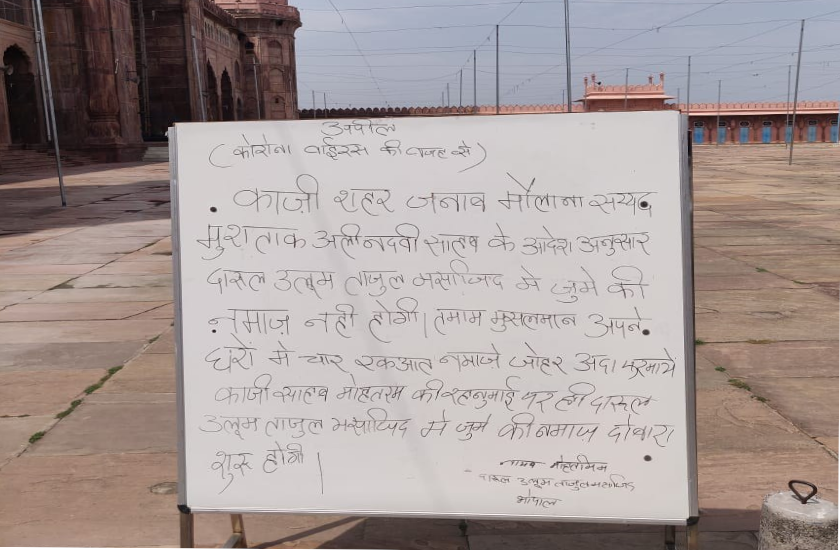 अपील
(कोरोना वाईरस की वजह से)
काज़ी शहर जनाब मौलाना सय्यद
मुशताक अली नदवी साहब के आदेश अनुसार
दारूल उलूम ताजुल मसाजिद मे जुमे की
नमाज़ नही होगी। तमाम मुसलमान अपने
घरों मे चार रकआत नमाज़े जोहर अदा फरमाये
काजी साहब मोहतरम की रहनुमाई पर ही दारूल
उलूम ताजुल मसाजिद मे जुमे की नमाज़ दोबारा
शुरू होगी।
नायब मोहतमिम
दारूल उलूम ताजुल मसाजिद
भोपाल